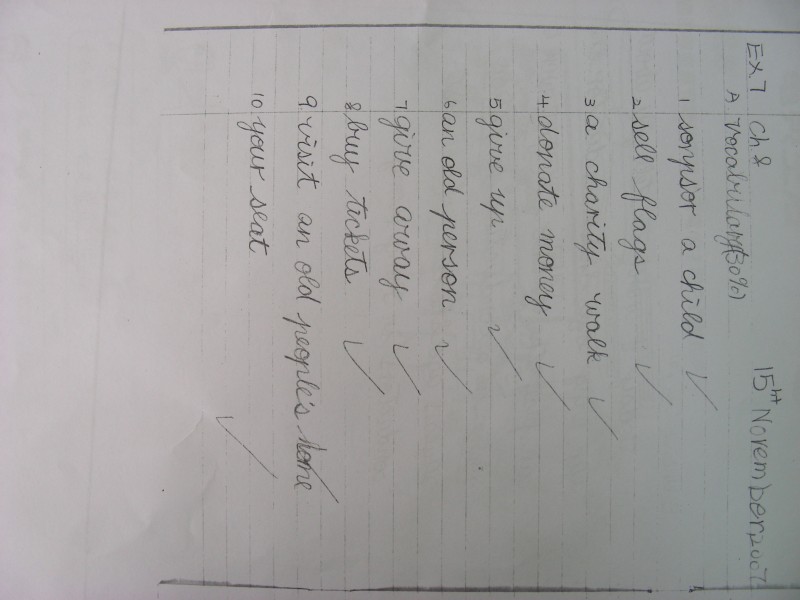 Ex.7 Ch 8 15th November 2007
A Vocabulary (30%)
1 sonpsor a child
2 sell flags
3 a charity walk
4. donate money
5 give up
6 an old person
7 give away
8 buy tickets
9. visit an old people's home
10 your seat